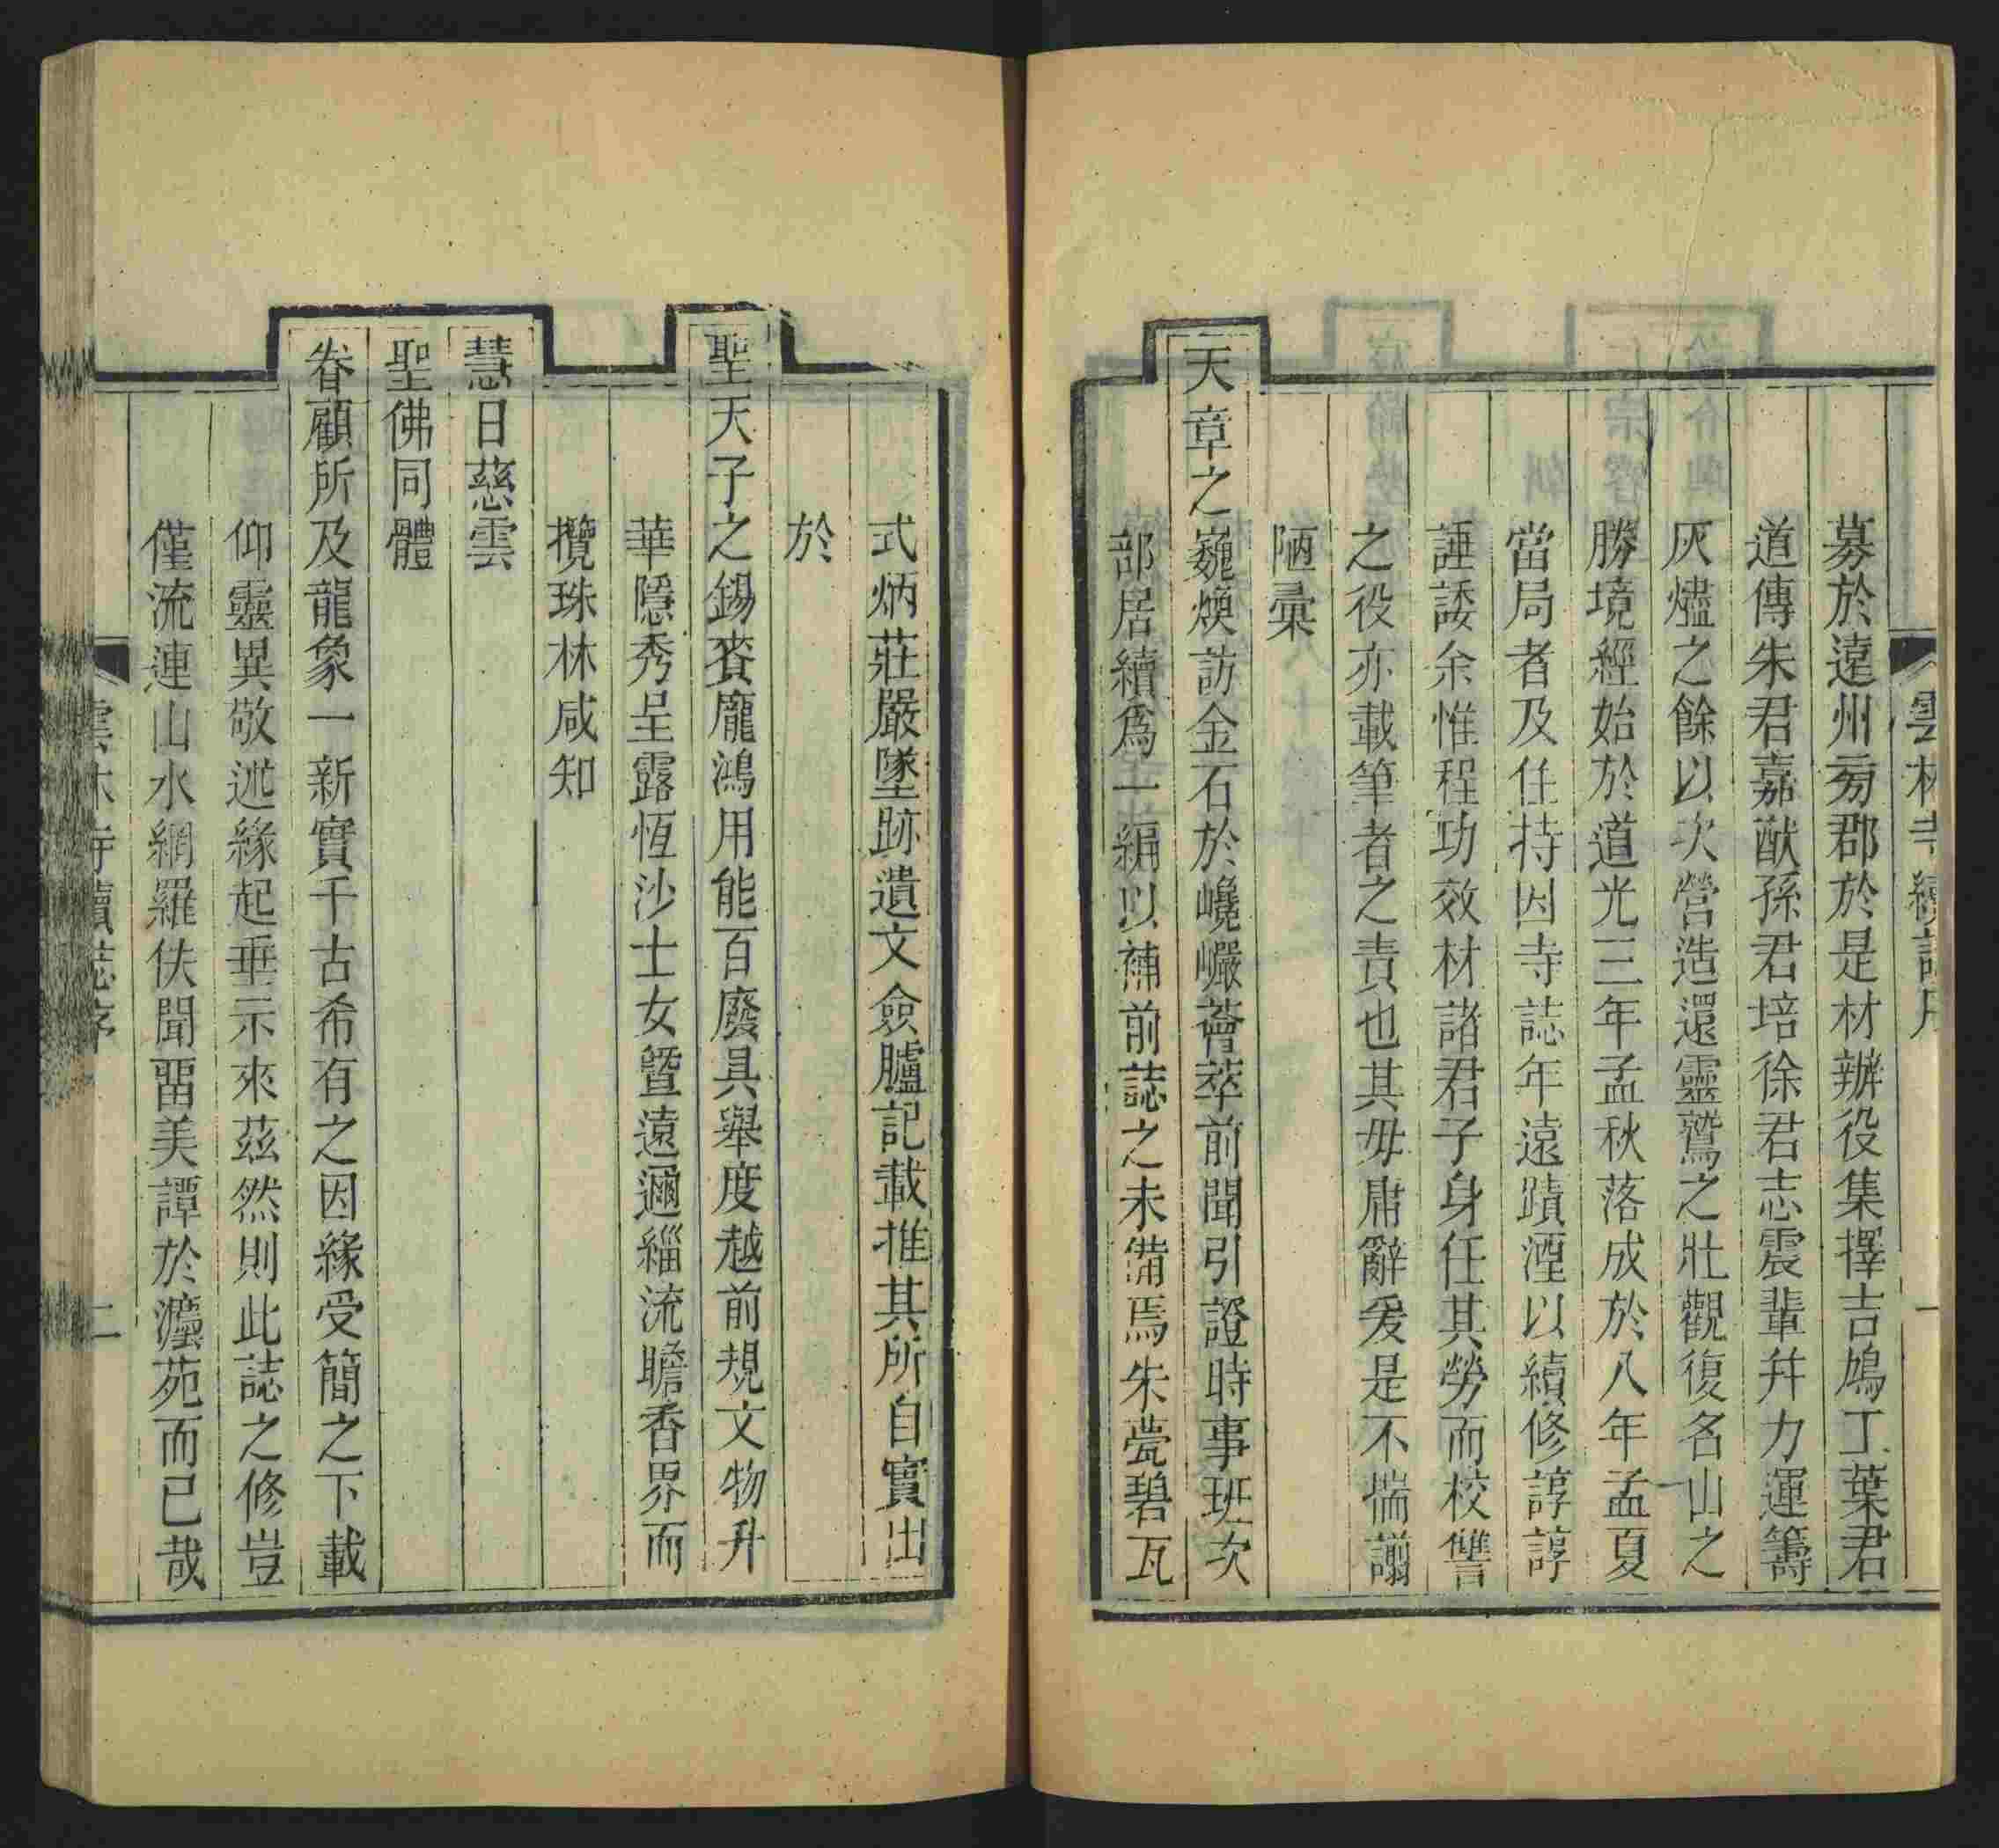 雲林寺續誌序
一
募於遠州旁郡於是材辦役集擇吉鳩工葉君
道傳朱君嘉猷孫君培徐君志震輩幷力運籌
灰燼之餘以次營造還靈鷲之壯觀復名山之
勝境經始於道光三年孟秋落成於八年孟夏
當局者及住持因寺誌年遠蹟湮以續修諄諄
諈諉余惟程功效材諸君子身任其勞而校讐
之役亦載筆者之責也其毋庸辭爰是不揣譾
陋彙
天章之巍煥訪金石於巉巗薈萃前聞引證時事班次
部居續爲一編以補前誌之未備焉朱甍碧瓦
式炳莊嚴墜跡遺文僉臚記載推其所自實出
於
聖天子之錫賚龐鴻用能百廢具舉度越前規文物升
華隱秀呈露恆沙士女曁遠邇緇流瞻香界而
攬珠林咸知
慧日慈雲
聖佛同體
眷顧所及龍象一新實千古希有之因緣受簡之下載
仰靈異敬述緣起垂示來茲然則此誌之修豈
僅流連山水網羅佚聞畱美譚於灋苑而已哉
雲林寺續誌序
二